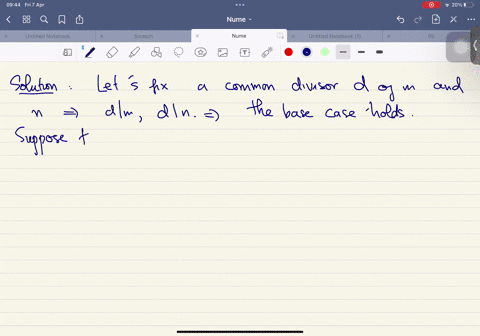 09:44 Fri 7 Apr
20%
Nume
Untitled Notebook
Nume
Untitled Notebook (1)
Solution: Let's fix a common divisor d of m and
n ⇒ d|m, d|n. ⇒ the base case holds.
Suppose t